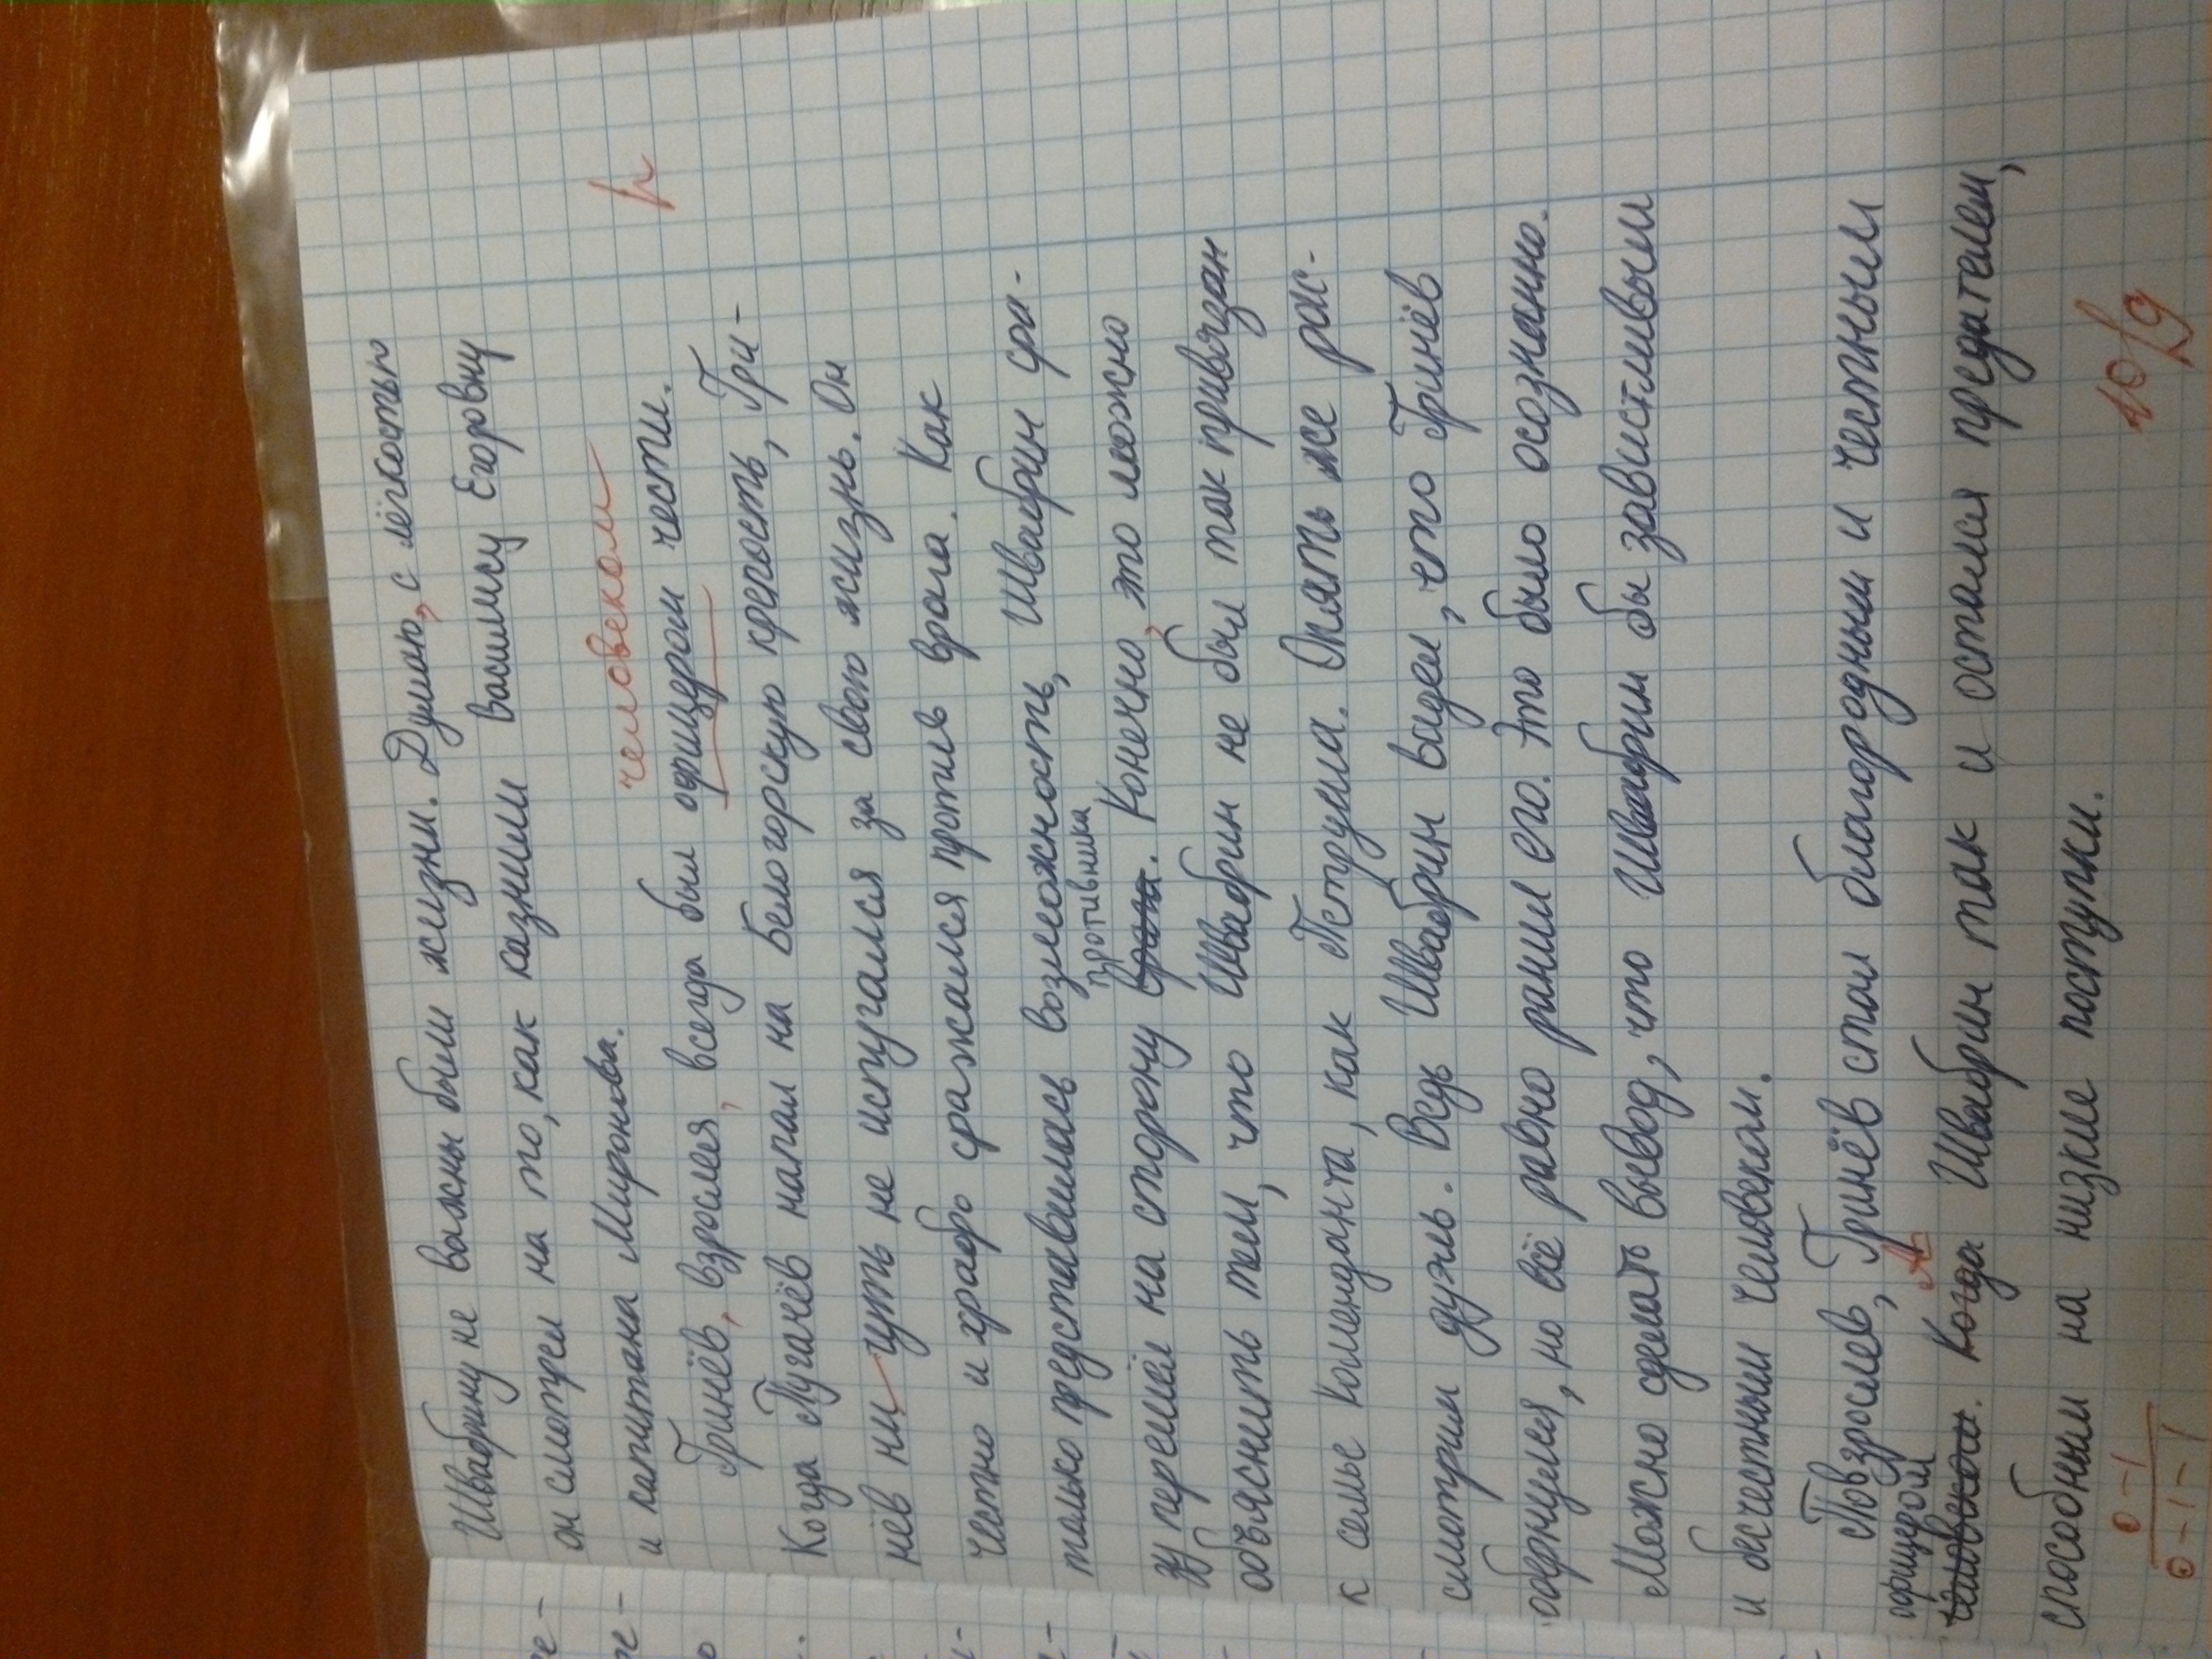 Швабрину не важны были жизни. Думаю, с лёгкостью
он смотрел на то, как казнили Василису Егоровну
и капитана Миронова.
человеком
р
Гринёв, взрослея, всегда был офицером чести.
Когда Пугачёв напал на Белогорскую крепость, Гри-
нёв ни чуть не испугался за свою жизнь. Он
честно и храбро сражался против врага. Как
только представилась возможность, Швабрин сра-
противника
зу перешёл на сторону врага. Конечно, это можно
объяснить тем, что Швабрин не был так привязан
к семье коменданта, как Петруша. Опять же рас-
смотрим дуэль. Ведь Швабрин видел, что Гринёв
обернулся, но всё равно ранил его. Это было осознанно.
Можно сделать вывод, что Швабрин бы завистливым
и бесчестным человеком.
Повзрослев, Гринёв стал благородным и честным
офицером А
человеком. Когда Швабрин так и остался предателем,
способным на низкие поступки.
0-1
0-1-1
10/9